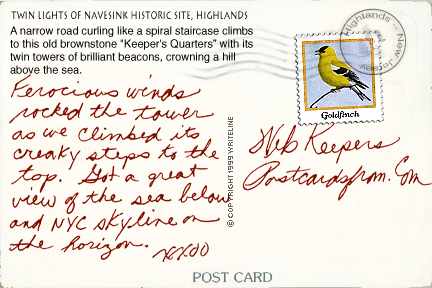 TWIN LIGHTS OF NAVESINK HISTORIC SITE, HIGHLANDS
A narrow road curling like a spiral staircase climbs
to this old brownstone "Keeper's Quarters" with its
twin towers of brilliant beacons, crowning a hill
above the sea.
Ferocious winds
rocked the tower
as we climbed its
creaky steps to the
top. Got a great
view of the sea below
and NYC skyline on
the horizon.
XXOO
© COPYRIGHT 1999 WRITELINE
Highlands
New
Goldfinch
Web Keepers
Postcardsfrom.Com
POST CARD